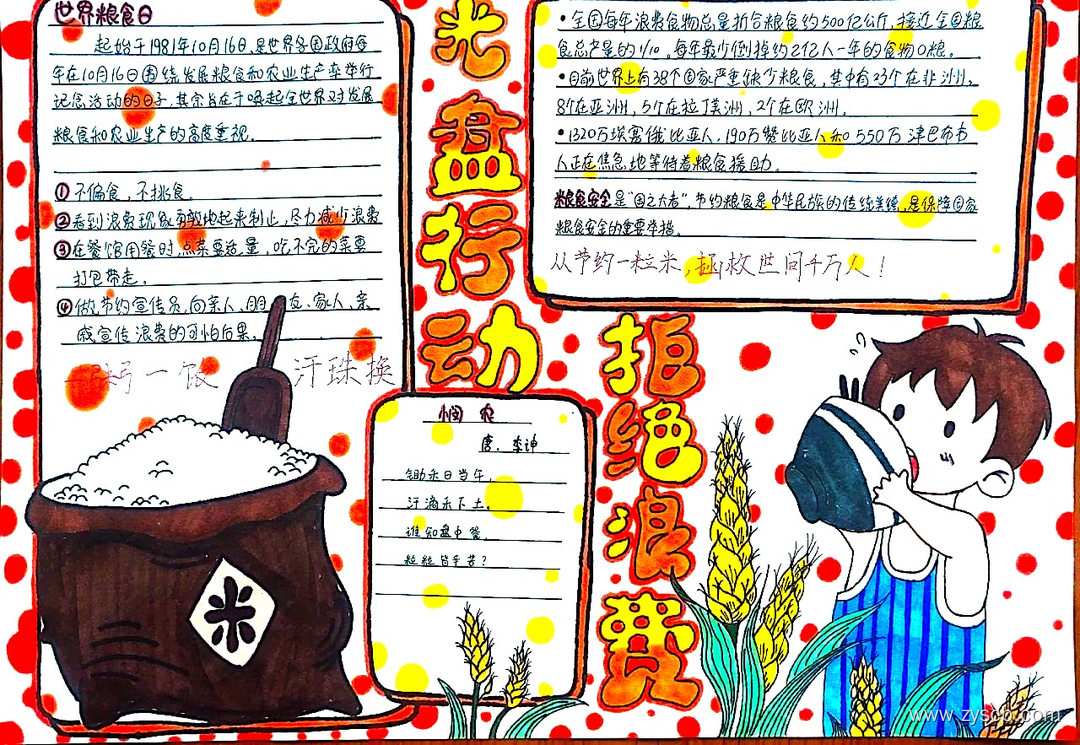 世界粮食日
起始于1981年10月16日,是世界各国政府每
年在10月16日围绕发展粮食和农业生产率举行
记念活动的日子,其宗旨在于唤起全世界对发展
粮食和农业生产的高度重视.
①不偏食,不挑食.
②看到浪费现象勇敢地起来制止,尽力减少浪费
③在餐馆用餐时,点菜要适量,吃不完的菜要
打包带走.
④做节约宣传员,向亲人,朋友、家人、亲
戚宣传浪费的可怕后果.
一粥一饭 汗珠换
光盘行动
拒绝浪费
•全国每年浪费食物总量折合粮食约500亿公斤,接近全国粮
食总产量的1/10,每年最少倒掉约2亿人一年的食物口粮.
•目前世界上有38个国家严重缺少粮食,其中有23个在非洲,
8个在亚洲,5个在拉丁美洲,2个在欧洲.
•1320万埃塞俄比亚人,190万赞比亚人和550万津巴布韦
人正在焦急地等待着粮食援助.
粮食安全是“国之大者”,节约粮食是中华民族的传统美德,是保障国家
粮食安全的重要举措.
从节约一粒米,拯救世间千万人!
悯农
唐.李绅
锄禾日当午,
汗滴禾下土.
谁知盘中餐
粒粒皆辛苦?
米
www.zyscb.com